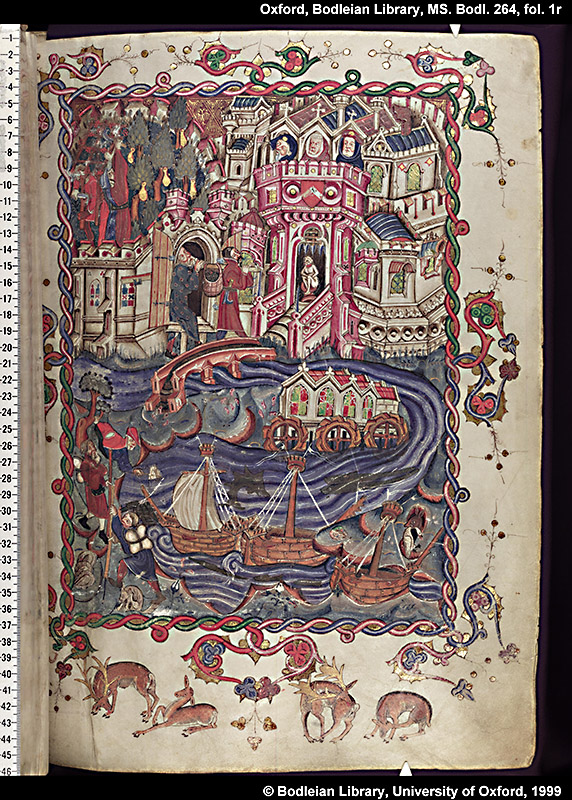 Oxford, Bodleian Library, MS. Bodl. 264, fol. 1r
1
2
3
4
5
6
7
8
9
10
11
12
13
14
15
16
17
18
19
20
21
22
23
24
25
26
27
28
29
30
31
32
33
34
35
36
37
38
39
40
41
42
43
44
45
46
© Bodleian Library, University of Oxford, 1999